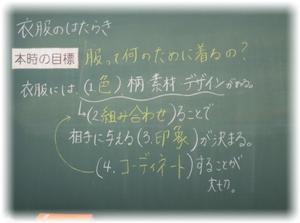 衣服のはたらき
本時の目標 服って何のために着るの?
衣服には、(1色)柄 素材 デザインがある。
(2組み合わせ)ることで
相手に与える(3.印象)が決まる。
(4.コーディネート)することが
大切。